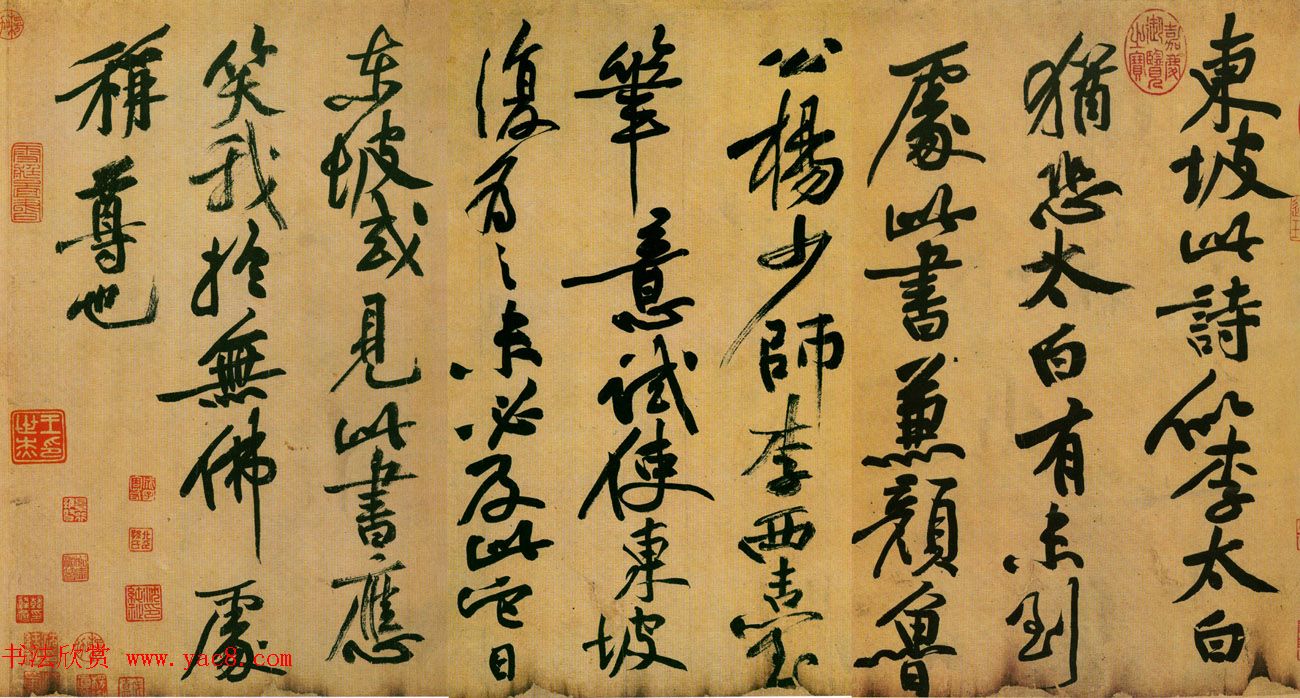 東坡此詩似李太白
猶恐太白有未到
處此書兼顏魯
公楊少師李西臺
筆意試使東坡
復為之未必及此它日
東坡或見此書應
笑我於無佛處
稱尊也
嘉慶御覽之寶
书法欣赏 www.yac8.com